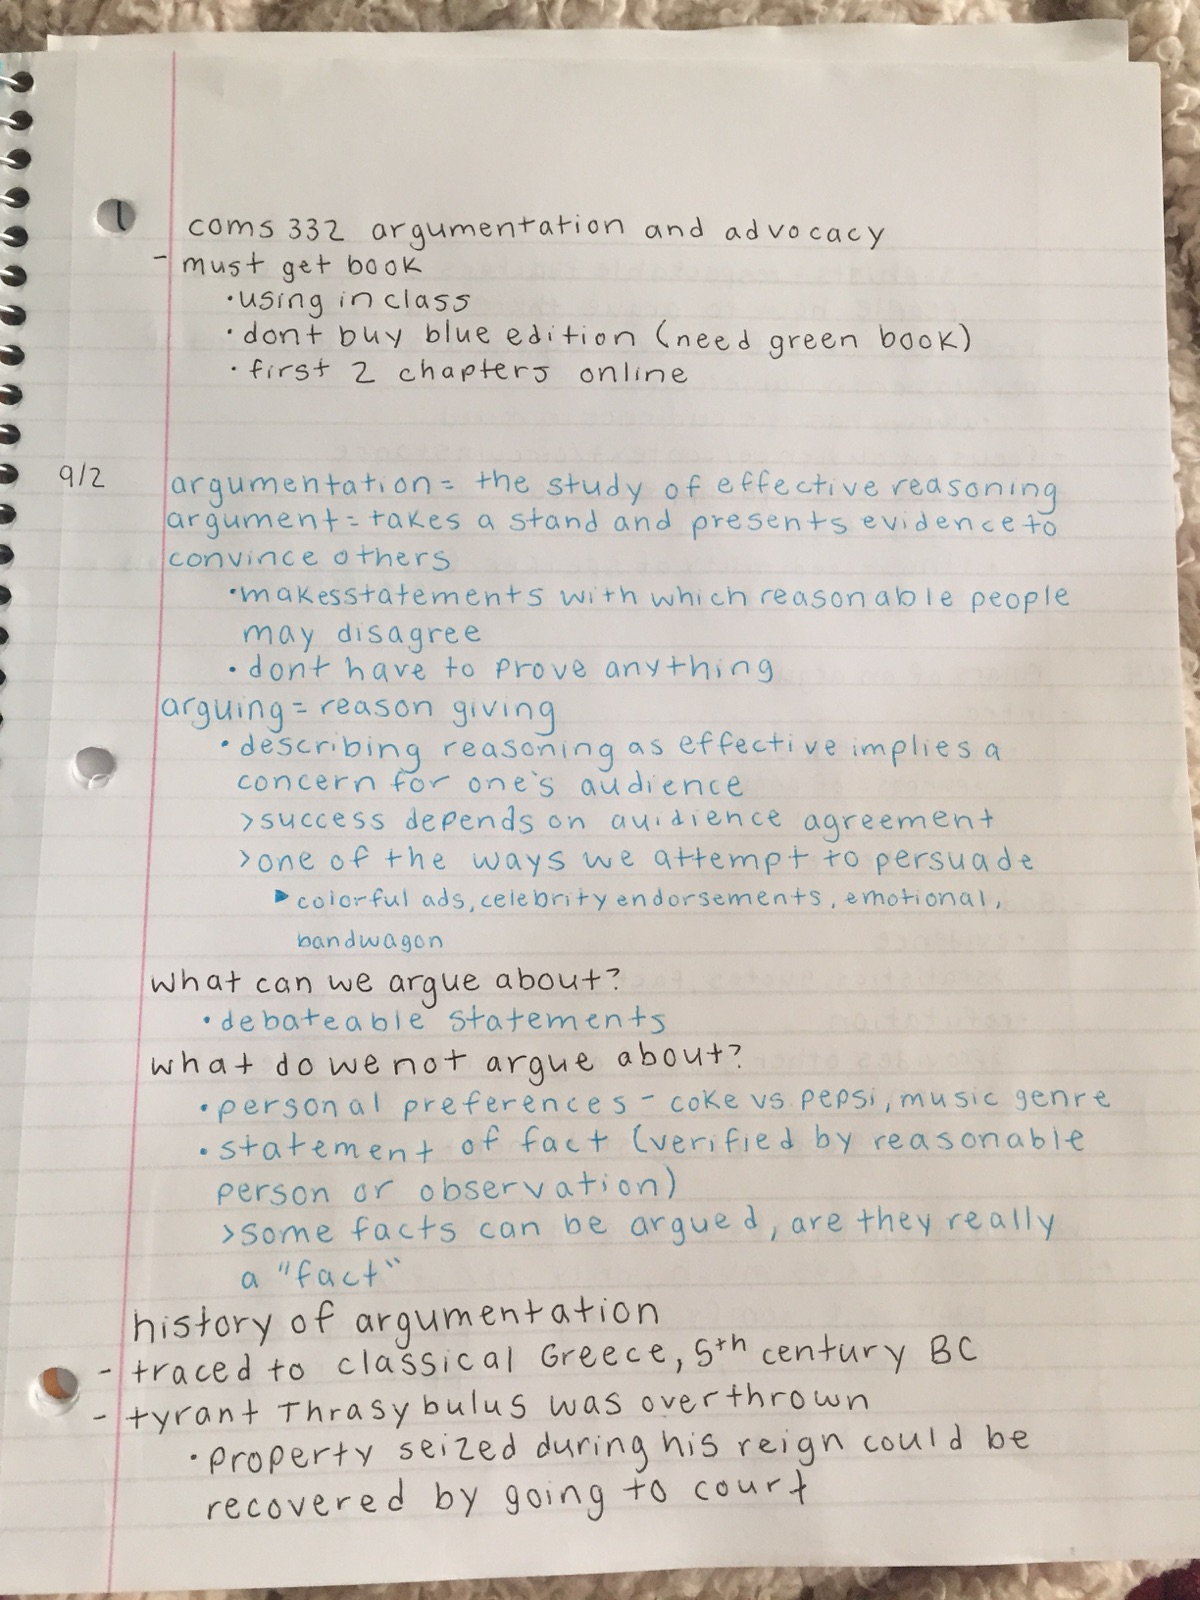 coms 332 argumentation and advocacy
- must get book
•using in class
•dont buy blue edition (need green book)
•first 2 chapters online
9/2 argumentation = the study of effective reasoning
argument = takes a stand and presents evidence to
convince others
•makes statements with which reasonable people
may disagree
•dont have to prove anything
arguing = reason giving
•describing reasoning as effective implies a
concern for one's audience
>success depends on auidience agreement
>one of the ways we attempt to persuade
▶colorful ads, celebrity endorsements, emotional,
bandwagon
what can we argue about?
•debateable statements
what do we not argue about?
•personal preferences - coke vs pepsi, music genre
•statement of fact (verified by reasonable
person or observation)
>some facts can be argued, are they really
a "fact"
history of argumentation
- traced to classical Greece, 5th century BC
- tyrant Thrasybulus was overthrown
•property seized during his reign could be
recovered by going to court